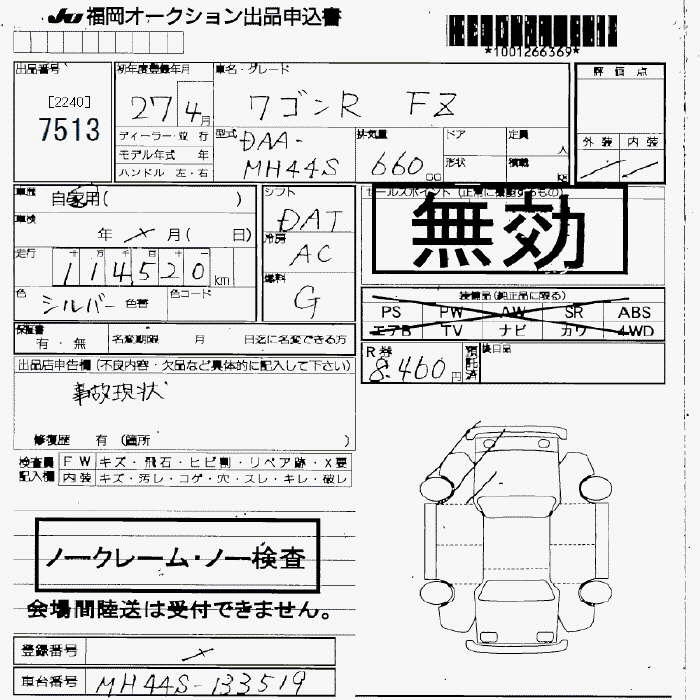 JU 福岡オークション出品申込書
*1001266369*
出品番号
[2240]
7513
初年度登録年月
27年 4月
ディーラー・並 行
モデル年式 年
ハンドル 左・右
車名・グレード
ワゴンR FZ
型式
DAA-
MH44S
排気量
660cc
ドア
形状
定員
人
積載
kg
評価点
外装 内装
車歴
自家用( )
車検
年 月( 日)
走行
十 万 千 百 十 一
114520km
色
シルバー
色替
色コード
シフト
DAT
冷房
AC
燃料
G
セールスポイント (正常に機能するもの)
無効
装備品(純正品に限る)
PS PW AW SR ABS
エアB TV ナビ カワ 4WD
保証書
有・無
名変期限 月 日迄に名変できる方
R券
8,460円
預託済
後日品
出品店申告欄 (不良内容・欠品など具体的に記入して下さい)
事故現状
修復歴 有 (箇所 )
検査員
記入欄
FW キズ・飛石・ヒビ割・リペア跡・X要
内装 キズ・汚レ・コゲ・穴・スレ・キレ・破レ
ノークレーム・ノー検査
会場間陸送は受付できません。
登録番号
車台番号 MH44S-133519